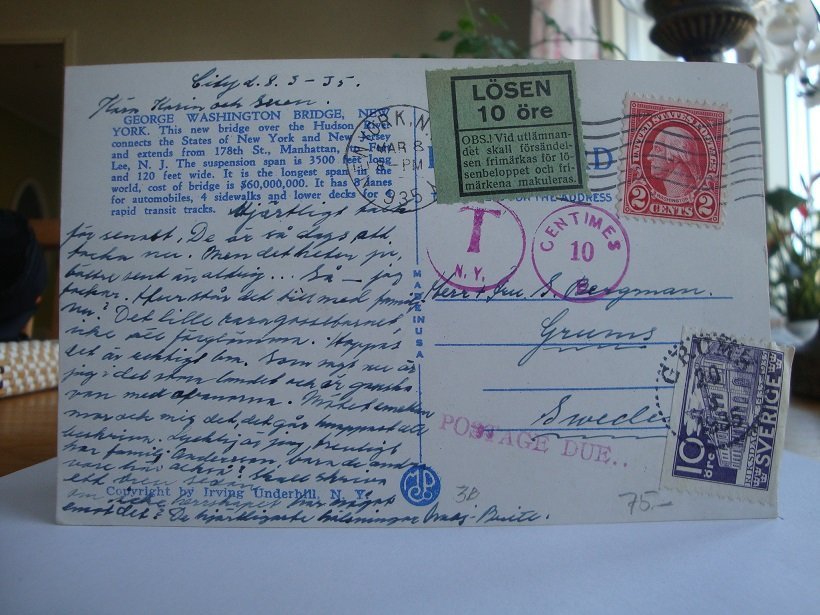 City d. 8. 3-35.
Kära Karin och
GEORGE WASHINGTON BRIDGE, NEW
YORK. This new bridge over the Hudson River
connects the States of New York and New Jersey
and extends from 178th St., Manhattan, to Fort
Lee, N. J. The suspension span is 3500 feet long
and 120 feet wide. It is the longest span in the
world, cost of bridge is $60,000,000. It has 8 lanes
for automobiles, 4 sidewalks and lower decks for
rapid transit tracks.
Hjärtligt tack
för senast. De är så dags att
tacka nu. Men det heter ju,
bättre sent än aldrig... Så - jag
tackar. Hur står det till med familj
nu? Det lilla rara gossebarnet
icke att förglömma. Hoppas
det är riktigt bra. Som sagt nu är
jag i det stora landet och är ganska
van med
mor och mig det, det går knappast att
beskriva. Lycklig är jag,
har famij. Anderson, bara de
vore här också! Skall skriva
ett brev sedan
om icke herrskapet har något
emot det? De hjärtligaste hälsningar Maj-Britt.
Copyright by Irving Underhill, N. Y.
MADE IN USA
LÖSEN
10 öre
OBS.! Vid utlämnan-
det skall försändel-
sen frimärkas för lö-
senbeloppet och fri-
märkena makuleras.
N.Y.
MAR 8
PM
1935
FOR THE ADDRESS
UNITED STATES POSTAGE
WASHINGTON
2 CENTS 2
T
N.Y.
CENTIMES
10
Herr o Fru S. Bergman.
Grums
Sweden
POSTAGE DUE..
GRUMS
10
öre
RIKSDAG
SVERIGE
38
75.-